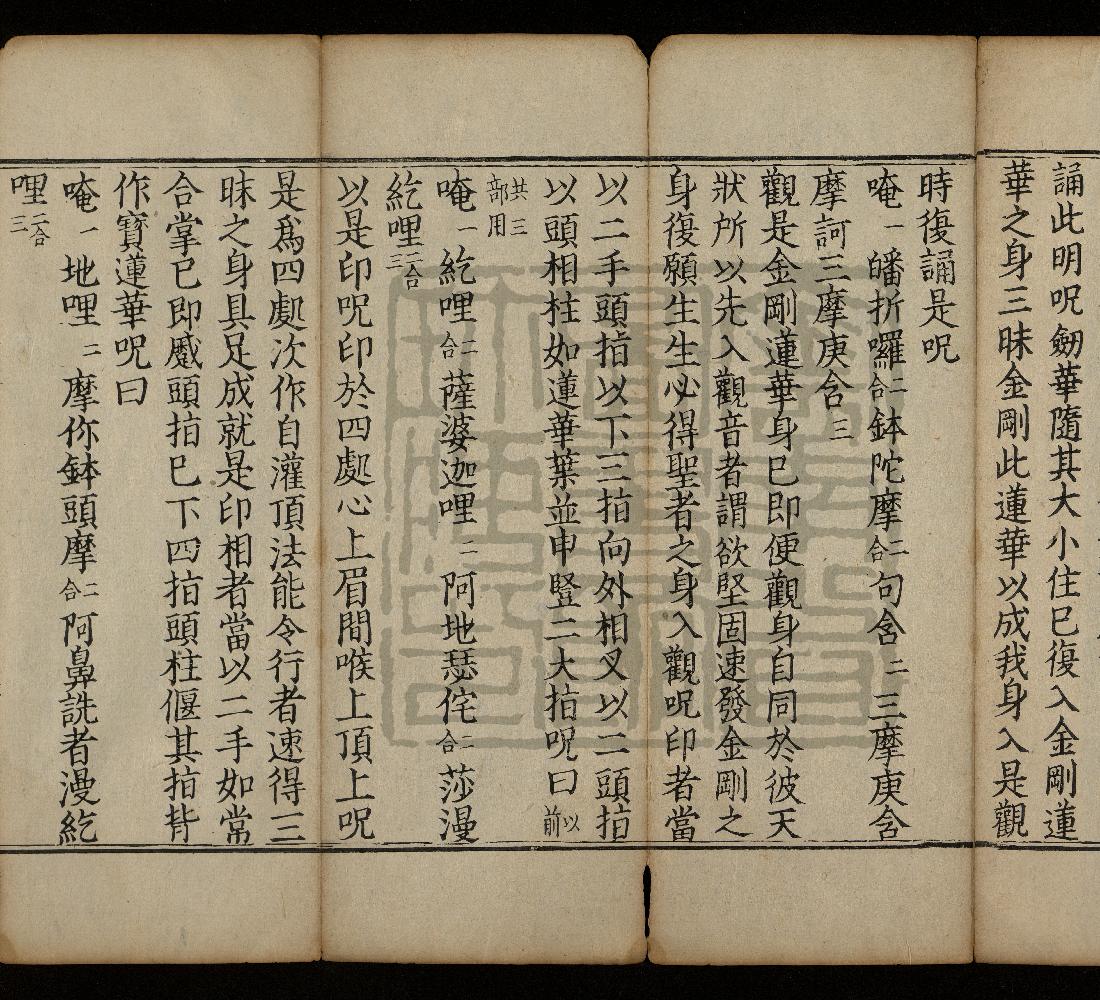 誦此明呪劒華隨其大小住已復入金剛蓮
華之身三昧金剛此蓮華以成我身入是觀
時復誦是呪
唵一皤折囉二合鉢陀摩二合句含二三摩庾含
摩訶三摩庾含三
觀是金剛蓮華身已即便觀身自同於彼天
狀所以先入觀音者謂欲堅固速發金剛之
身復願生生必得聖者之身入觀呪印者當
以二手頭指以下三指向外相叉以二頭指
以頭相柱如蓮華葉並申豎二大指呪曰以前
共三部用
唵一紇哩二合薩婆迦哩二阿地瑟侘二合莎漫
紇哩二合三
以是印呪印於四處心上眉間喉上頂上呪
是爲四處次作自灌頂法能令行者速得三
昧之身具足成就是印相者當以二手如常
合掌已即蹙頭指已下四指頭柱偃其指背
作寶蓮華呪曰
唵一地哩二摩你鉢頭摩二合阿鼻詵者漫紇
哩二合三